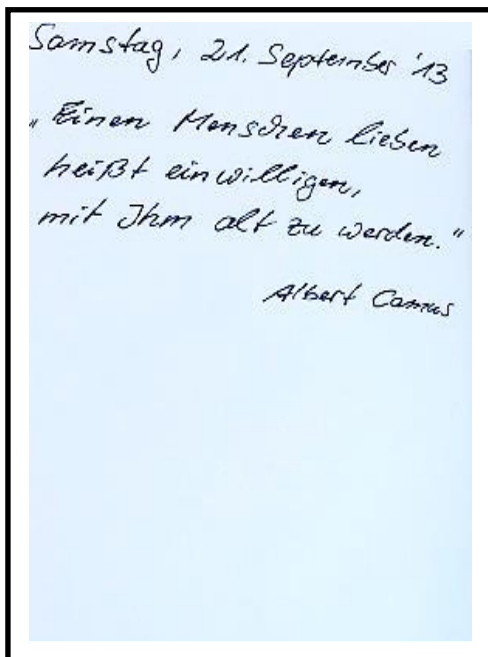 Samstag, 21. September '13
„Einen Menschen lieben
heißt einwilligen,
mit Ihm alt zu werden."
Albert Camus